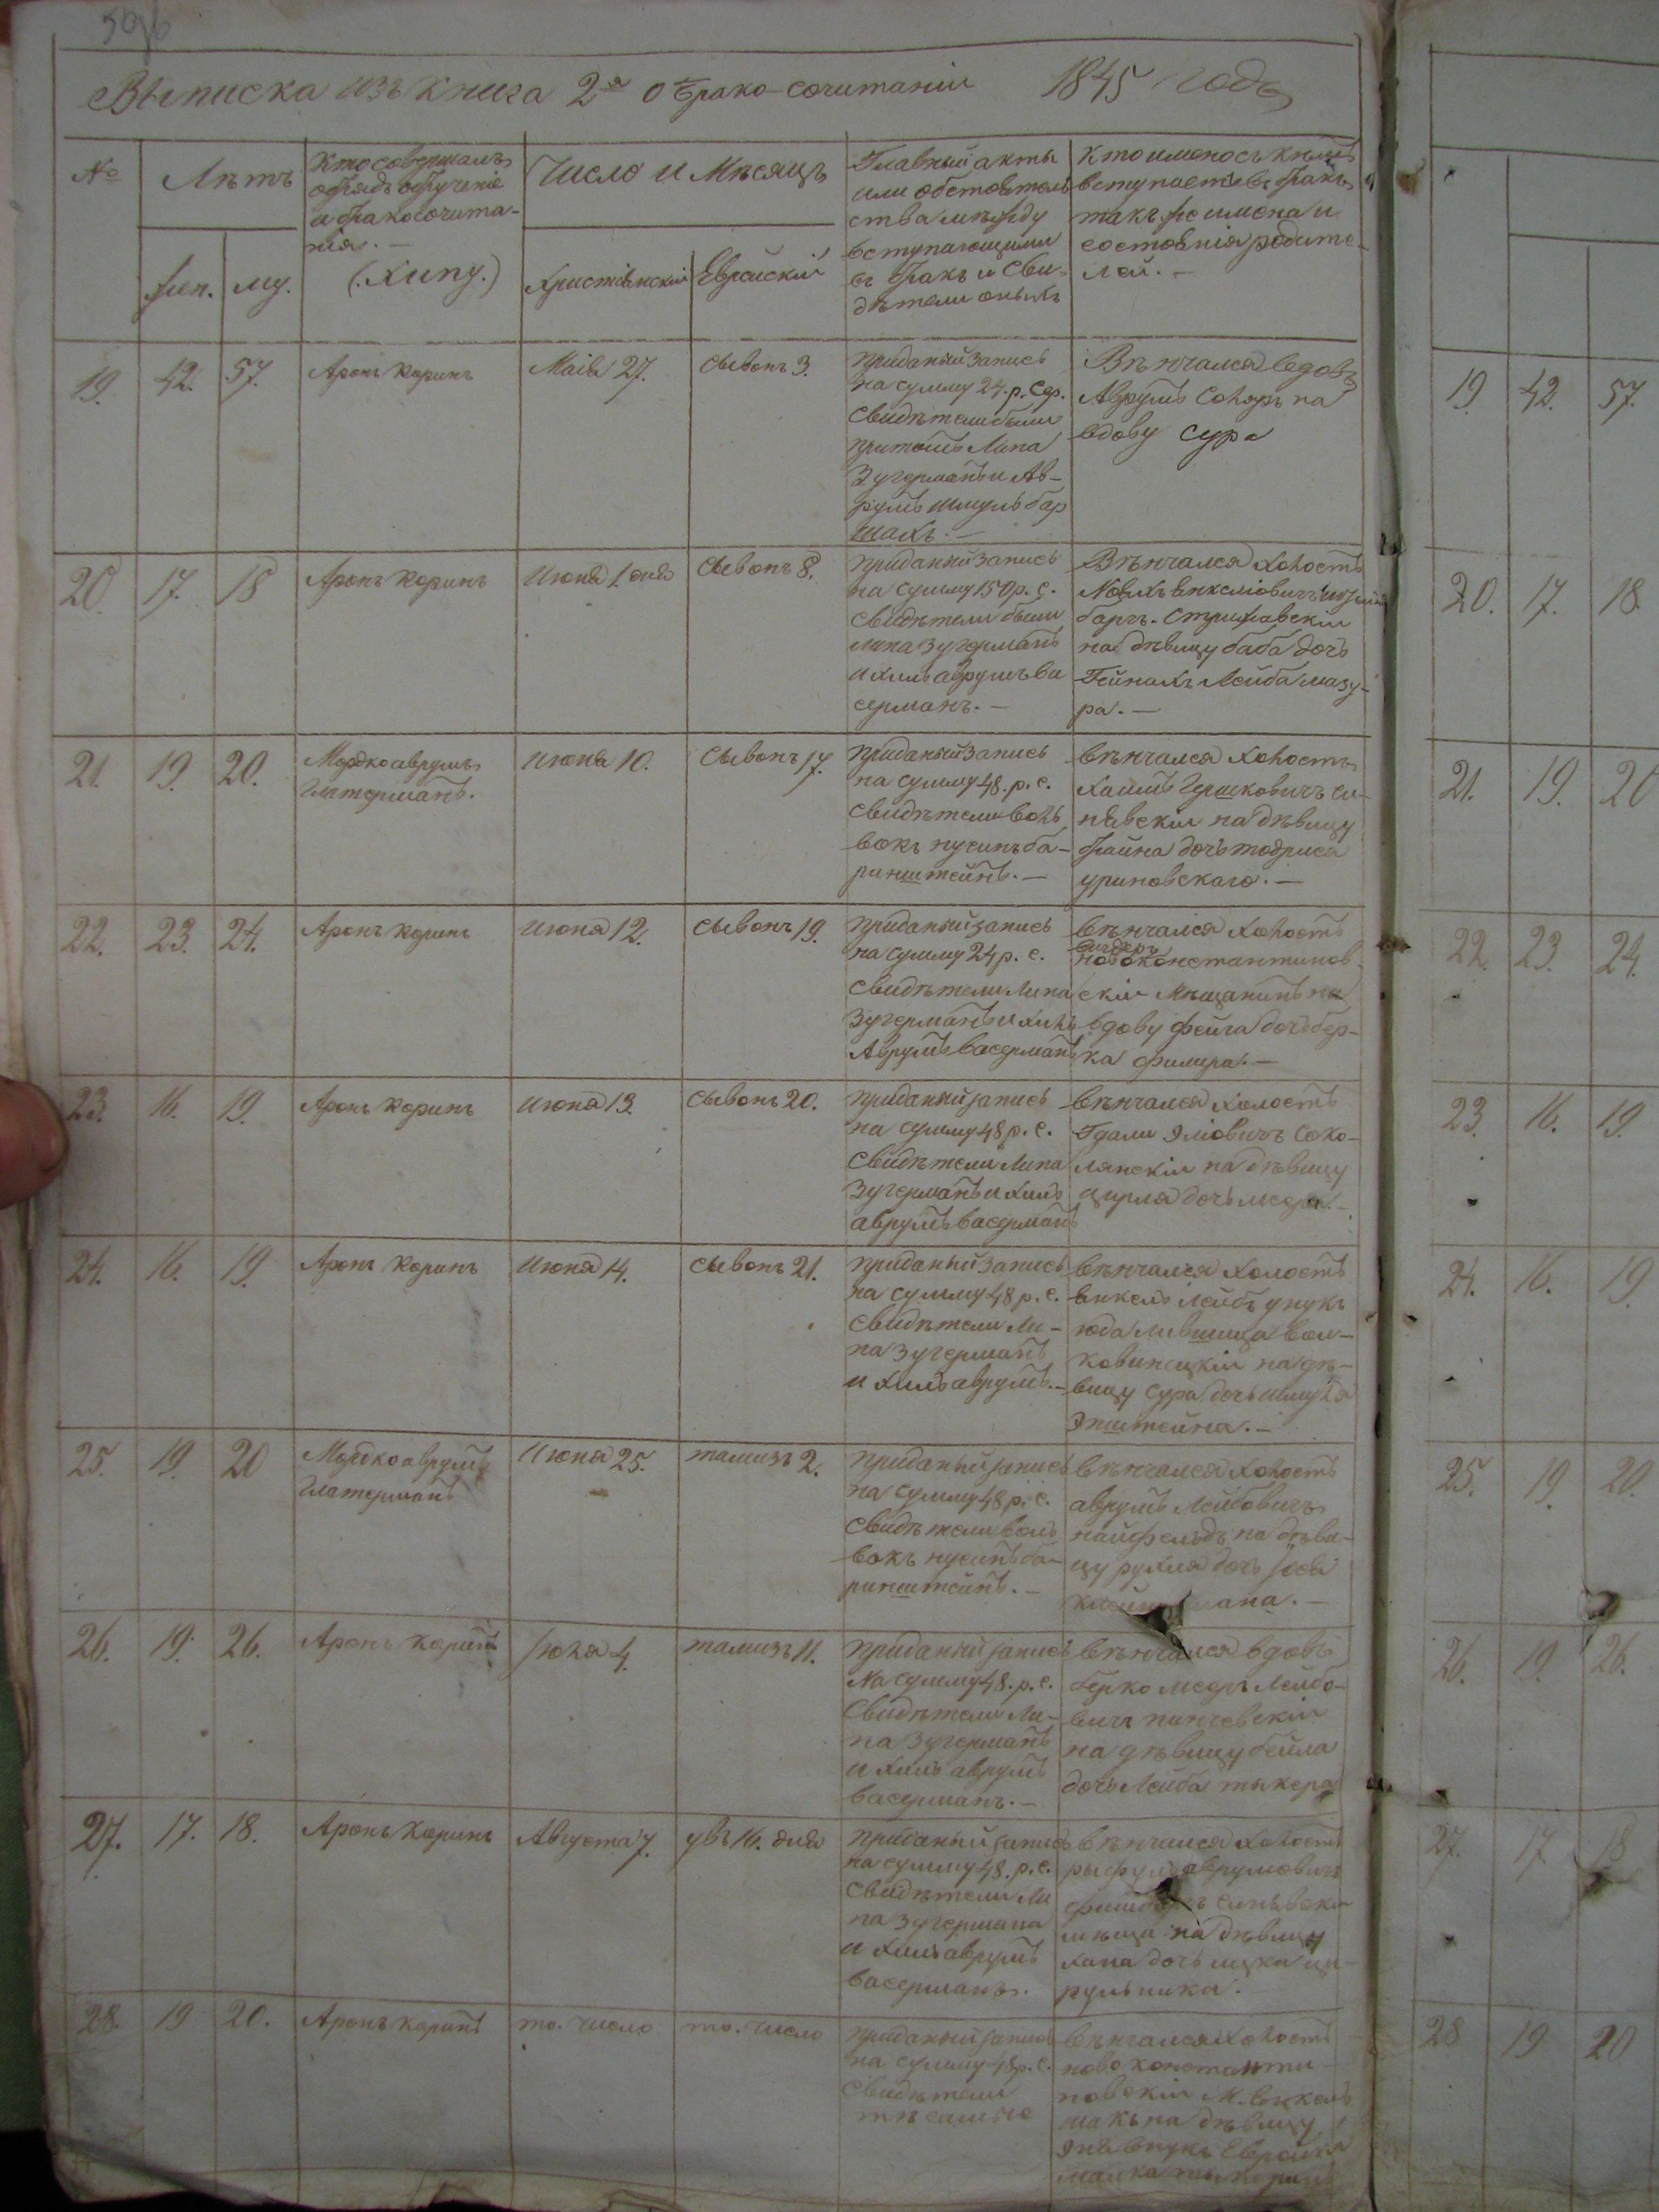 Выписка изъ книга 2я о брако-сочитаніи 1845 годъ
№
Лѣтъ
жен. му.
Кто совершалъ
обрядъ обручение
и бракосочита-
нія. —
Число и Мѣсяцъ
Христіянскій Еврейскій
Главный акты
или обстоятель
ства между
вступающими
въ бракъ и сви-
дѣтели оныхъ
Кто имяносъ кѣмъ
вступаетъ въ бракъ,
такъ же имена и
состоянія родите-
лей. —
19. 42. 57. Аронъ Коринъ Маія 27. Сывонъ 3.
приданый запись
на сумму 24. р. сер.
Свидѣтели были
притомъ Липа
Зугерманъ и Ав-
румъ Шмуль бар
шахъ. —
Вѣнчался вдовъ
Аврумъ на
вдову Сура
20. 17. 18 Аронъ Коринъ Июня 1. дня Сывонъ 8.
приданый запись
на сумму 150 р. с.
Свидѣтели были
Липа Зугерманъ
и Хиль Аврумъ ва
серманъ. —
Вѣнчался холостъ
Стрижавскій
на дѣвицу баба дочь
Гейнахъ Лейба мазу-
ра. —
21. 19. 20. Мордко аврумъ Июня 10. Сывонъ 17.
Глатерманъ.
приданый запись
на сумму 48. р. с.
Свидѣтели воль
вокъ нусинъ ба-
ринштейнъ. —
вѣнчался холостъ
Хаимъ Гершковичъ си-
нявскій на дѣвицу
файна дочь тодриса
уриновскаго. —
22. 23. 24. Аронъ Коринъ Июня 12. Сывонъ 19.
приданый запись
на сумму 24 р. с.
Свидѣтели Липа
Зугерманъ и Хиль
Аврумъ Васерманъ
вѣнчался холостъ
новоконстантинов
скій Мѣщанинъ на
вдову фейга дочь бер-
ка —
23. 16. 19. Аронъ Коринъ Июня 13. Сывонъ 20.
приданый запись
на сумму 48 р. с.
Свидѣтели Липа
Зугерманъ и Хиль
аврумъ васерманъ
вѣнчался холостъ
Гдали Эліовичъ Соко-
лянскій на дѣвицу
цирля дочь меера. —
24. 16. 19. Аронъ Коринъ Июня 14. Сывонъ 21.
приданый запись
на сумму 48 р. с.
Свидѣтели Ли-
па Зугерманъ
и Хиль аврумъ. —
вѣнчался холостъ
енкель Лейбъ унукъ
юда Лившица вол-
ковинецкій на дѣ-
вицу Сура дочь шмуля
Эпштейна. —
25. 19. 20 Мордко аврумъ Июня 25. тамизъ 2.
Глатерманъ
приданый запись
на сумму 48 р. с.
Свидѣтели воль
вокъ нусинъ ба-
ринштейнъ. —
вѣнчался холостъ
аврумъ Лейбовичъ
найфельдъ на дѣви-
цу рухля дочь
26. 19. 26. Аронъ Коринъ Июля 4. тамизъ 11.
приданый запись
На сумму 48. р. с.
Свидѣтели Ли-
па Зугерманъ
и Хиль аврумъ
васерманъ. —
вѣнчался вдовъ
берко мееръ Лейбо-
вичъ пинчевскій
на дѣвицу бейла
дочь Лейба тыкера
27. 17. 18. Аронъ Коринъ Августа 7. увъ 16. дня
приданый запись
на сумму 48. р. с.
Свидѣтели Ли
па Зугермана
и Хиль аврумъ
васерманъ.
вѣнчался холостъ
аврумовичъ
на дѣвицу
хана дочь ицка ци-
рульника.
28. 19 20. Аронъ Коринъ то. число то. число
приданый запись
на сумму 48 р. с.
Свидѣтели
тѣ самые
вѣнчался холостъ
новоконстанти
новскій М. енкель
на дѣвицу
19. 42. 57.
20. 17. 18.
21. 19. 20
22. 23. 24.
23. 16. 19.
24. 16. 19.
25. 19. 20.
26. 19. 26.
27. 17 18
28 19 20